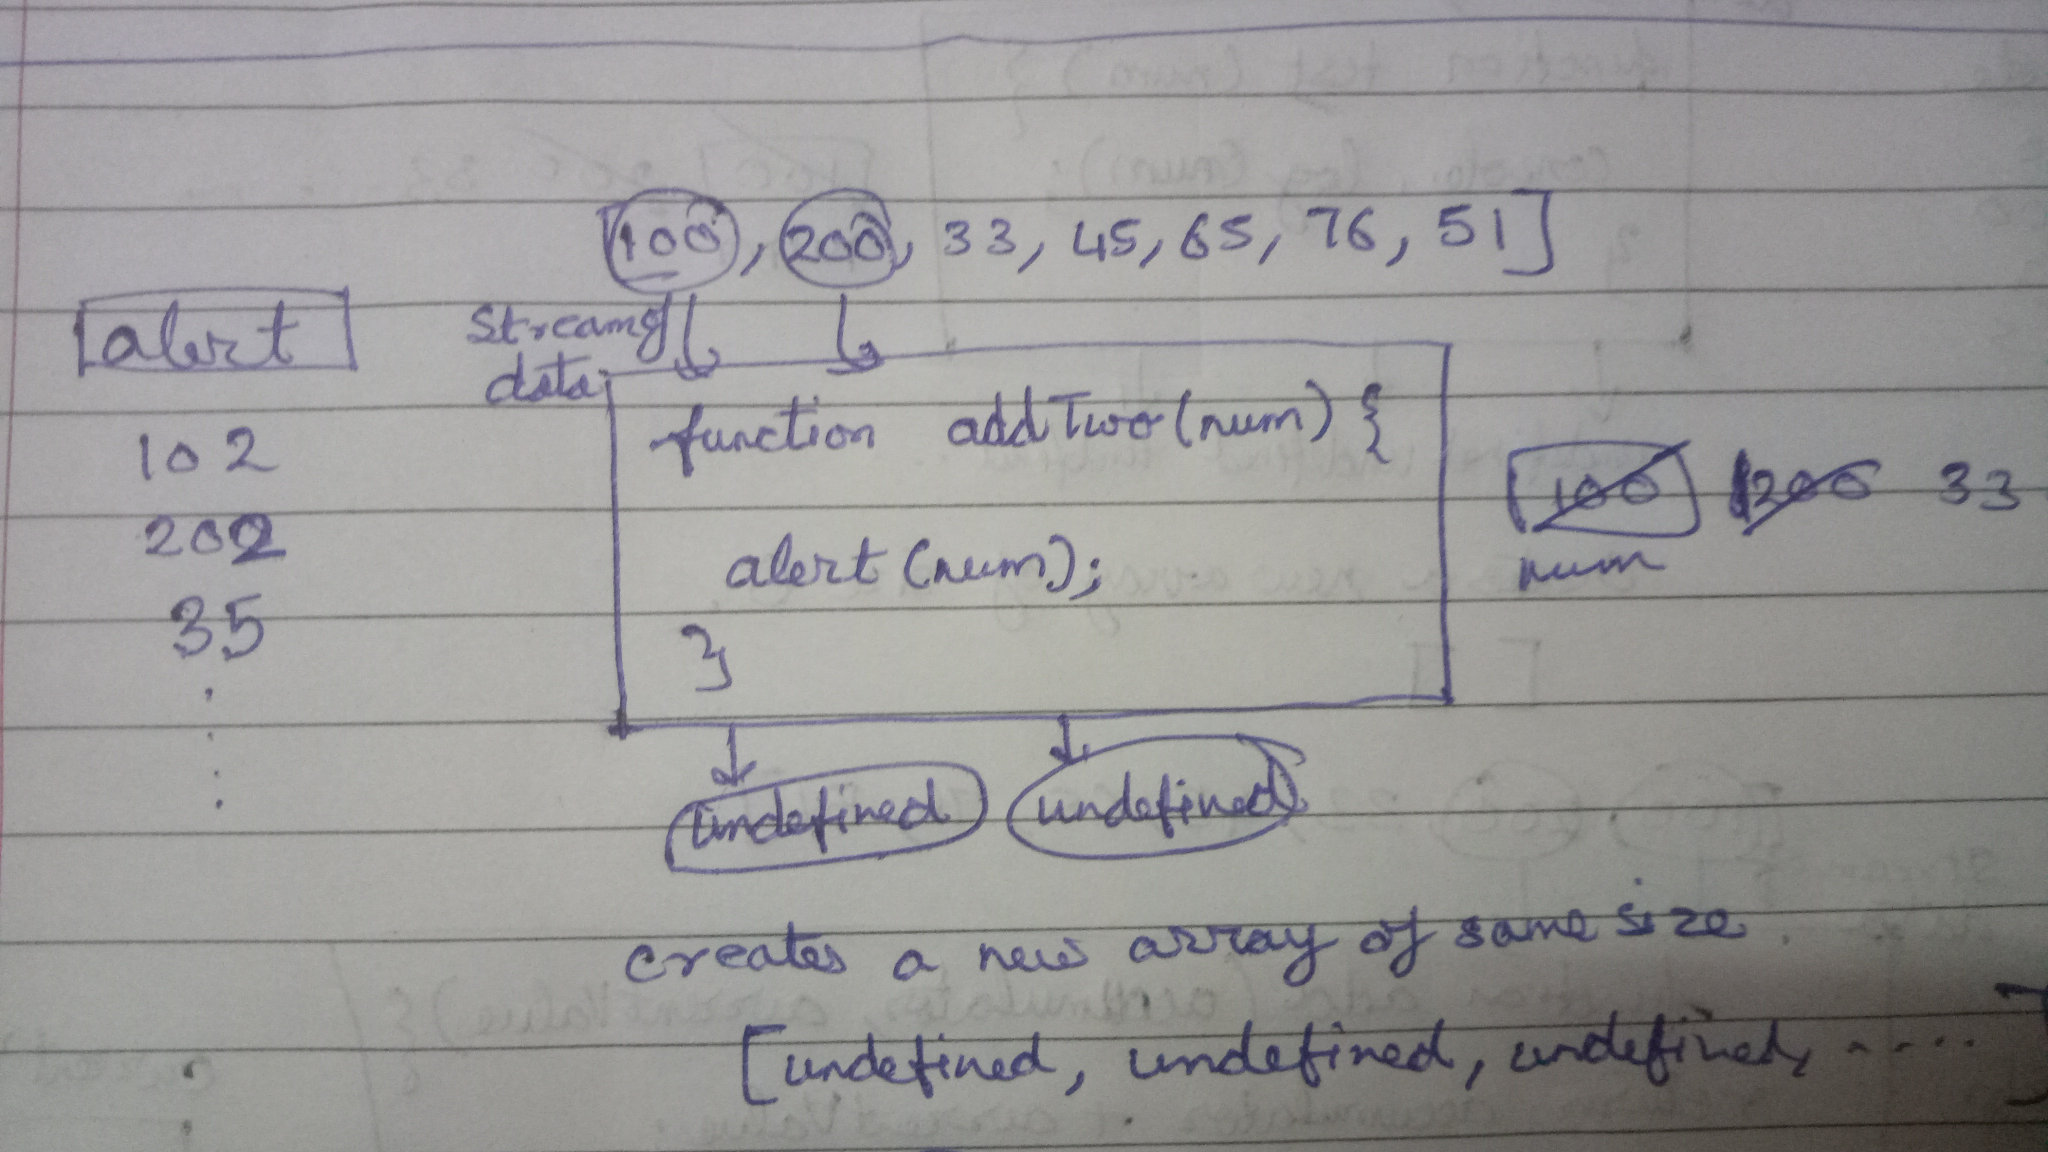 [100, 200, 33, 45, 65, 76, 51]
alert
Stream of
data
102
202
35
function addTwo(num) {
alert(num);
}
100 200 33
num
undefined undefined
creates a new array of same size
[undefined, undefined, undefined, .....]